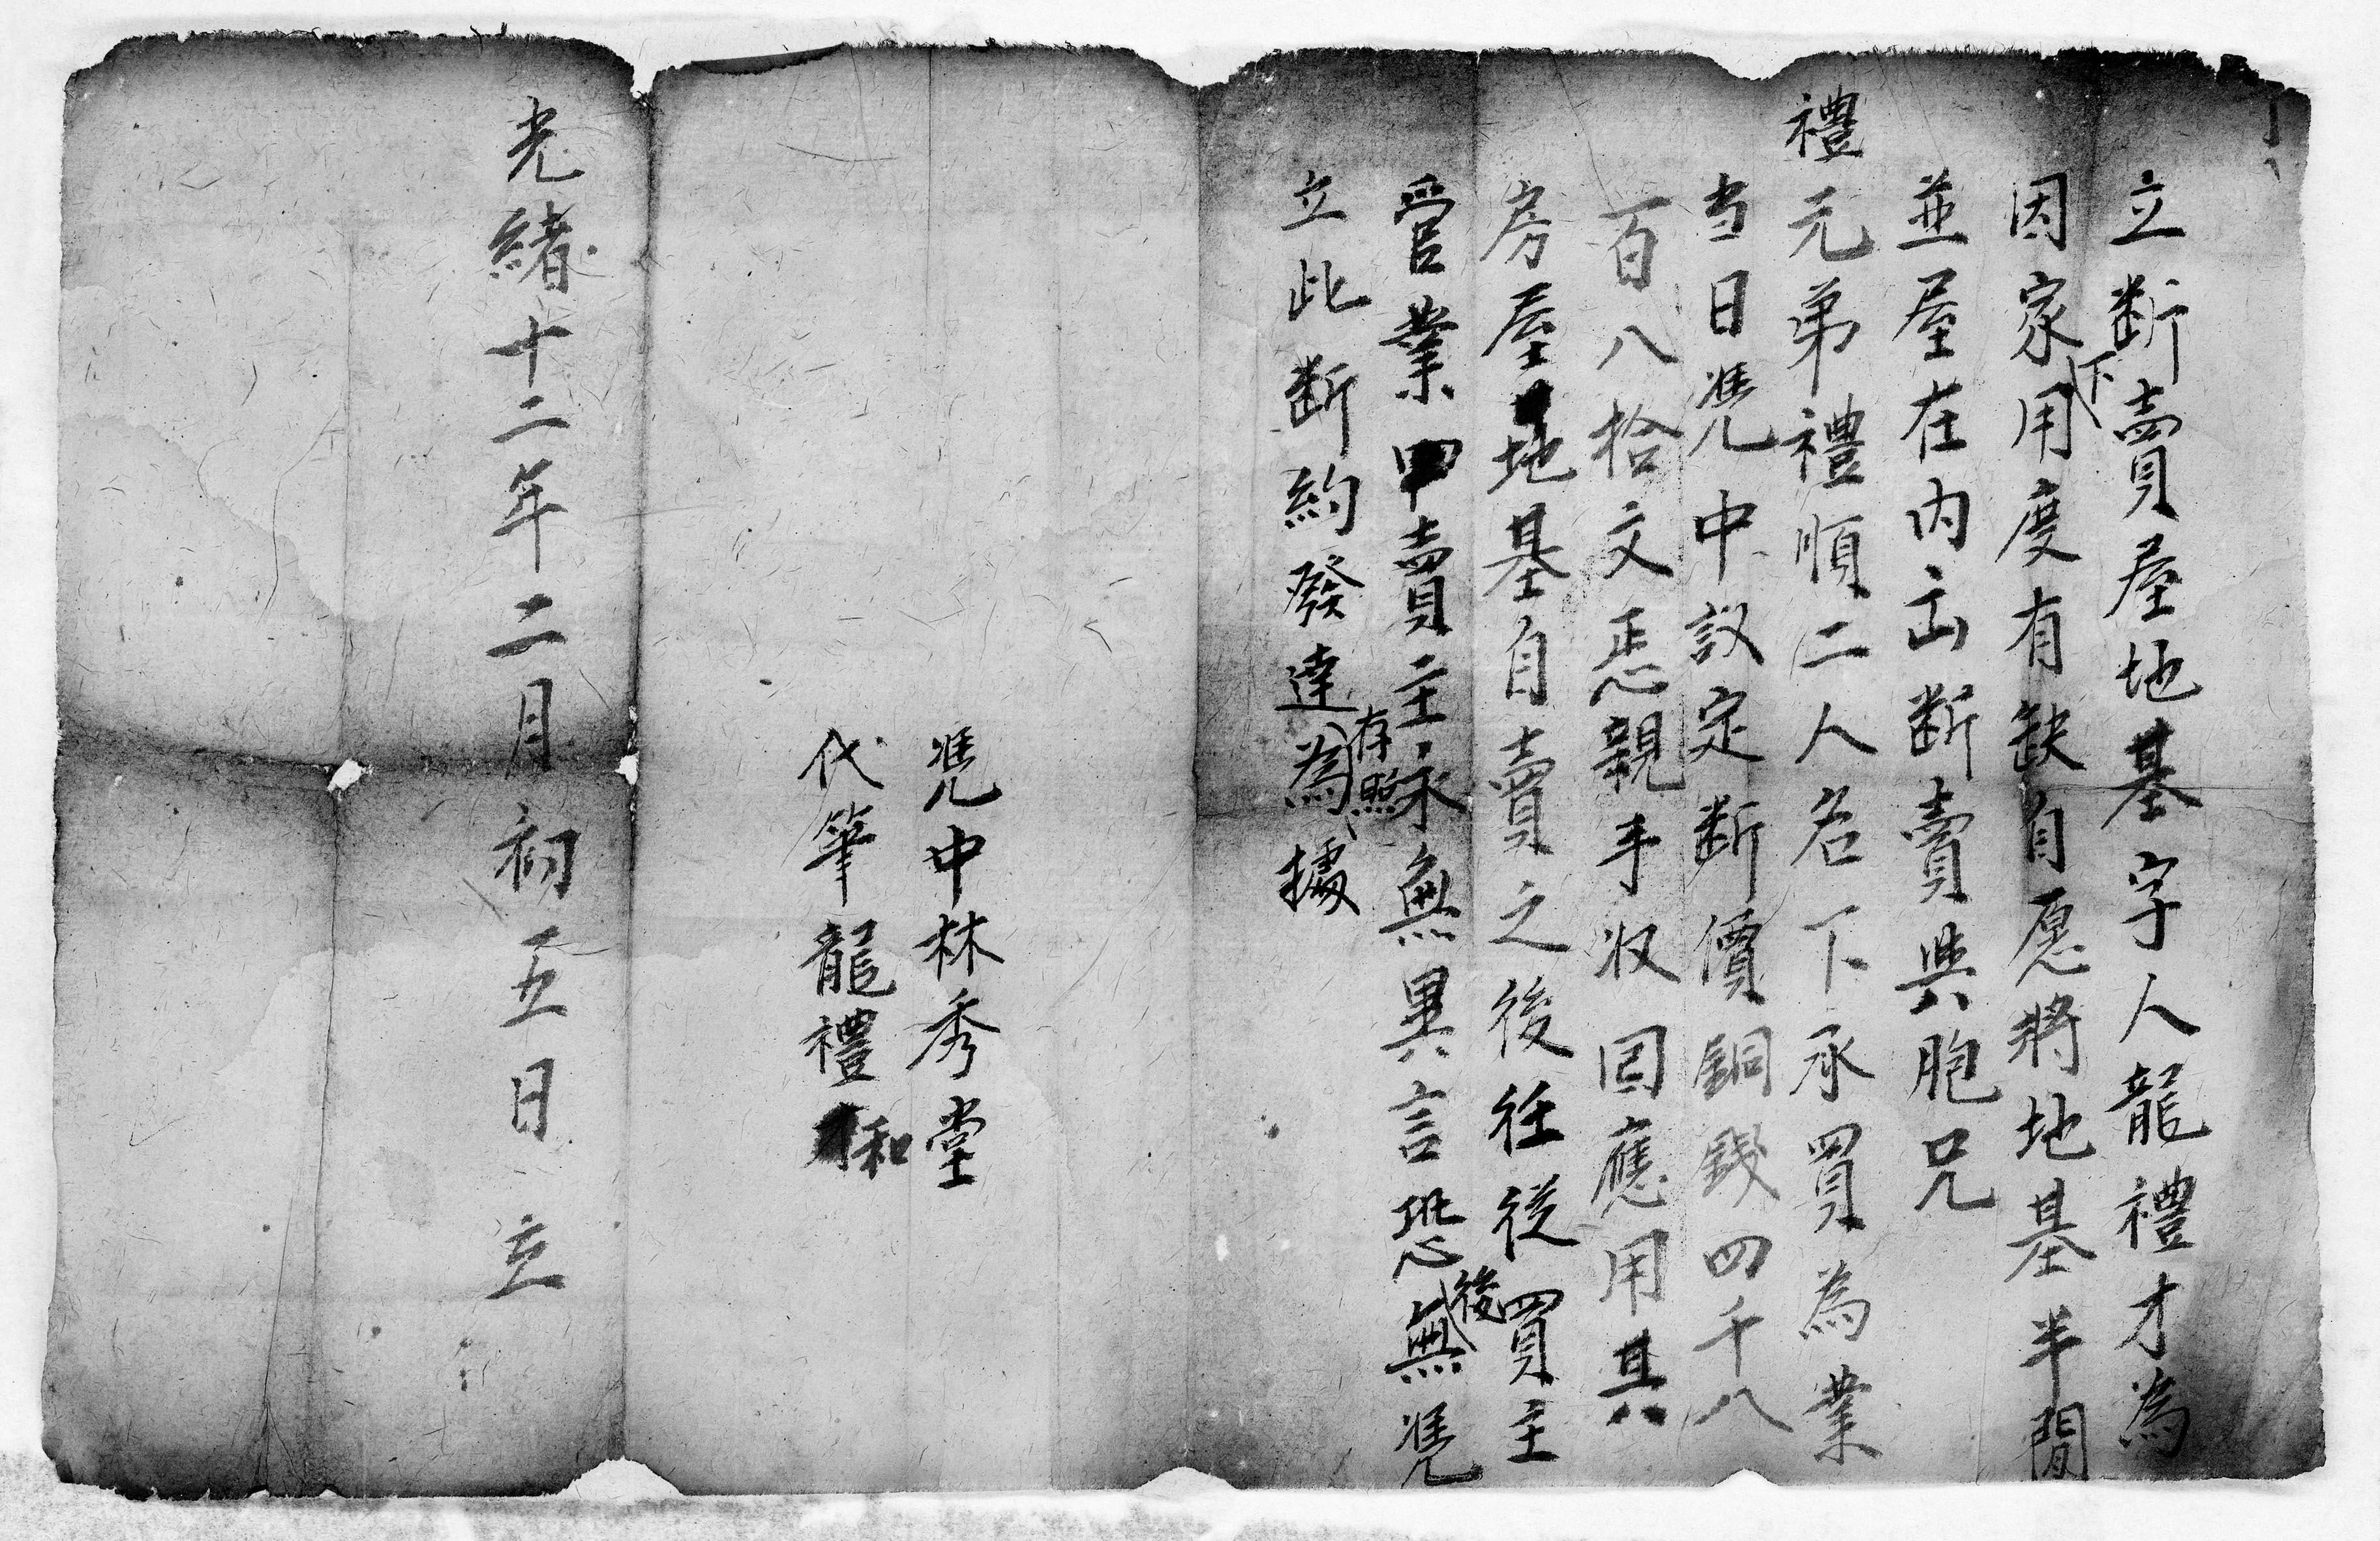 立断賣屋地基字人龍禮才為
因家下用度有缺自愿將地基半間
並屋在内出断賣與胞兄
禮元弟禮順二人名下承買為業
当日凴中議定断價銅錢四千八
百八拾文恁親手收回應用其
房屋地基自賣之後往後買主
管業賣主永無異言恐後無凴
立此断約發達有照為據
凴中林秀堂
代筆龍禮和
光緒十二年二月初五日 立